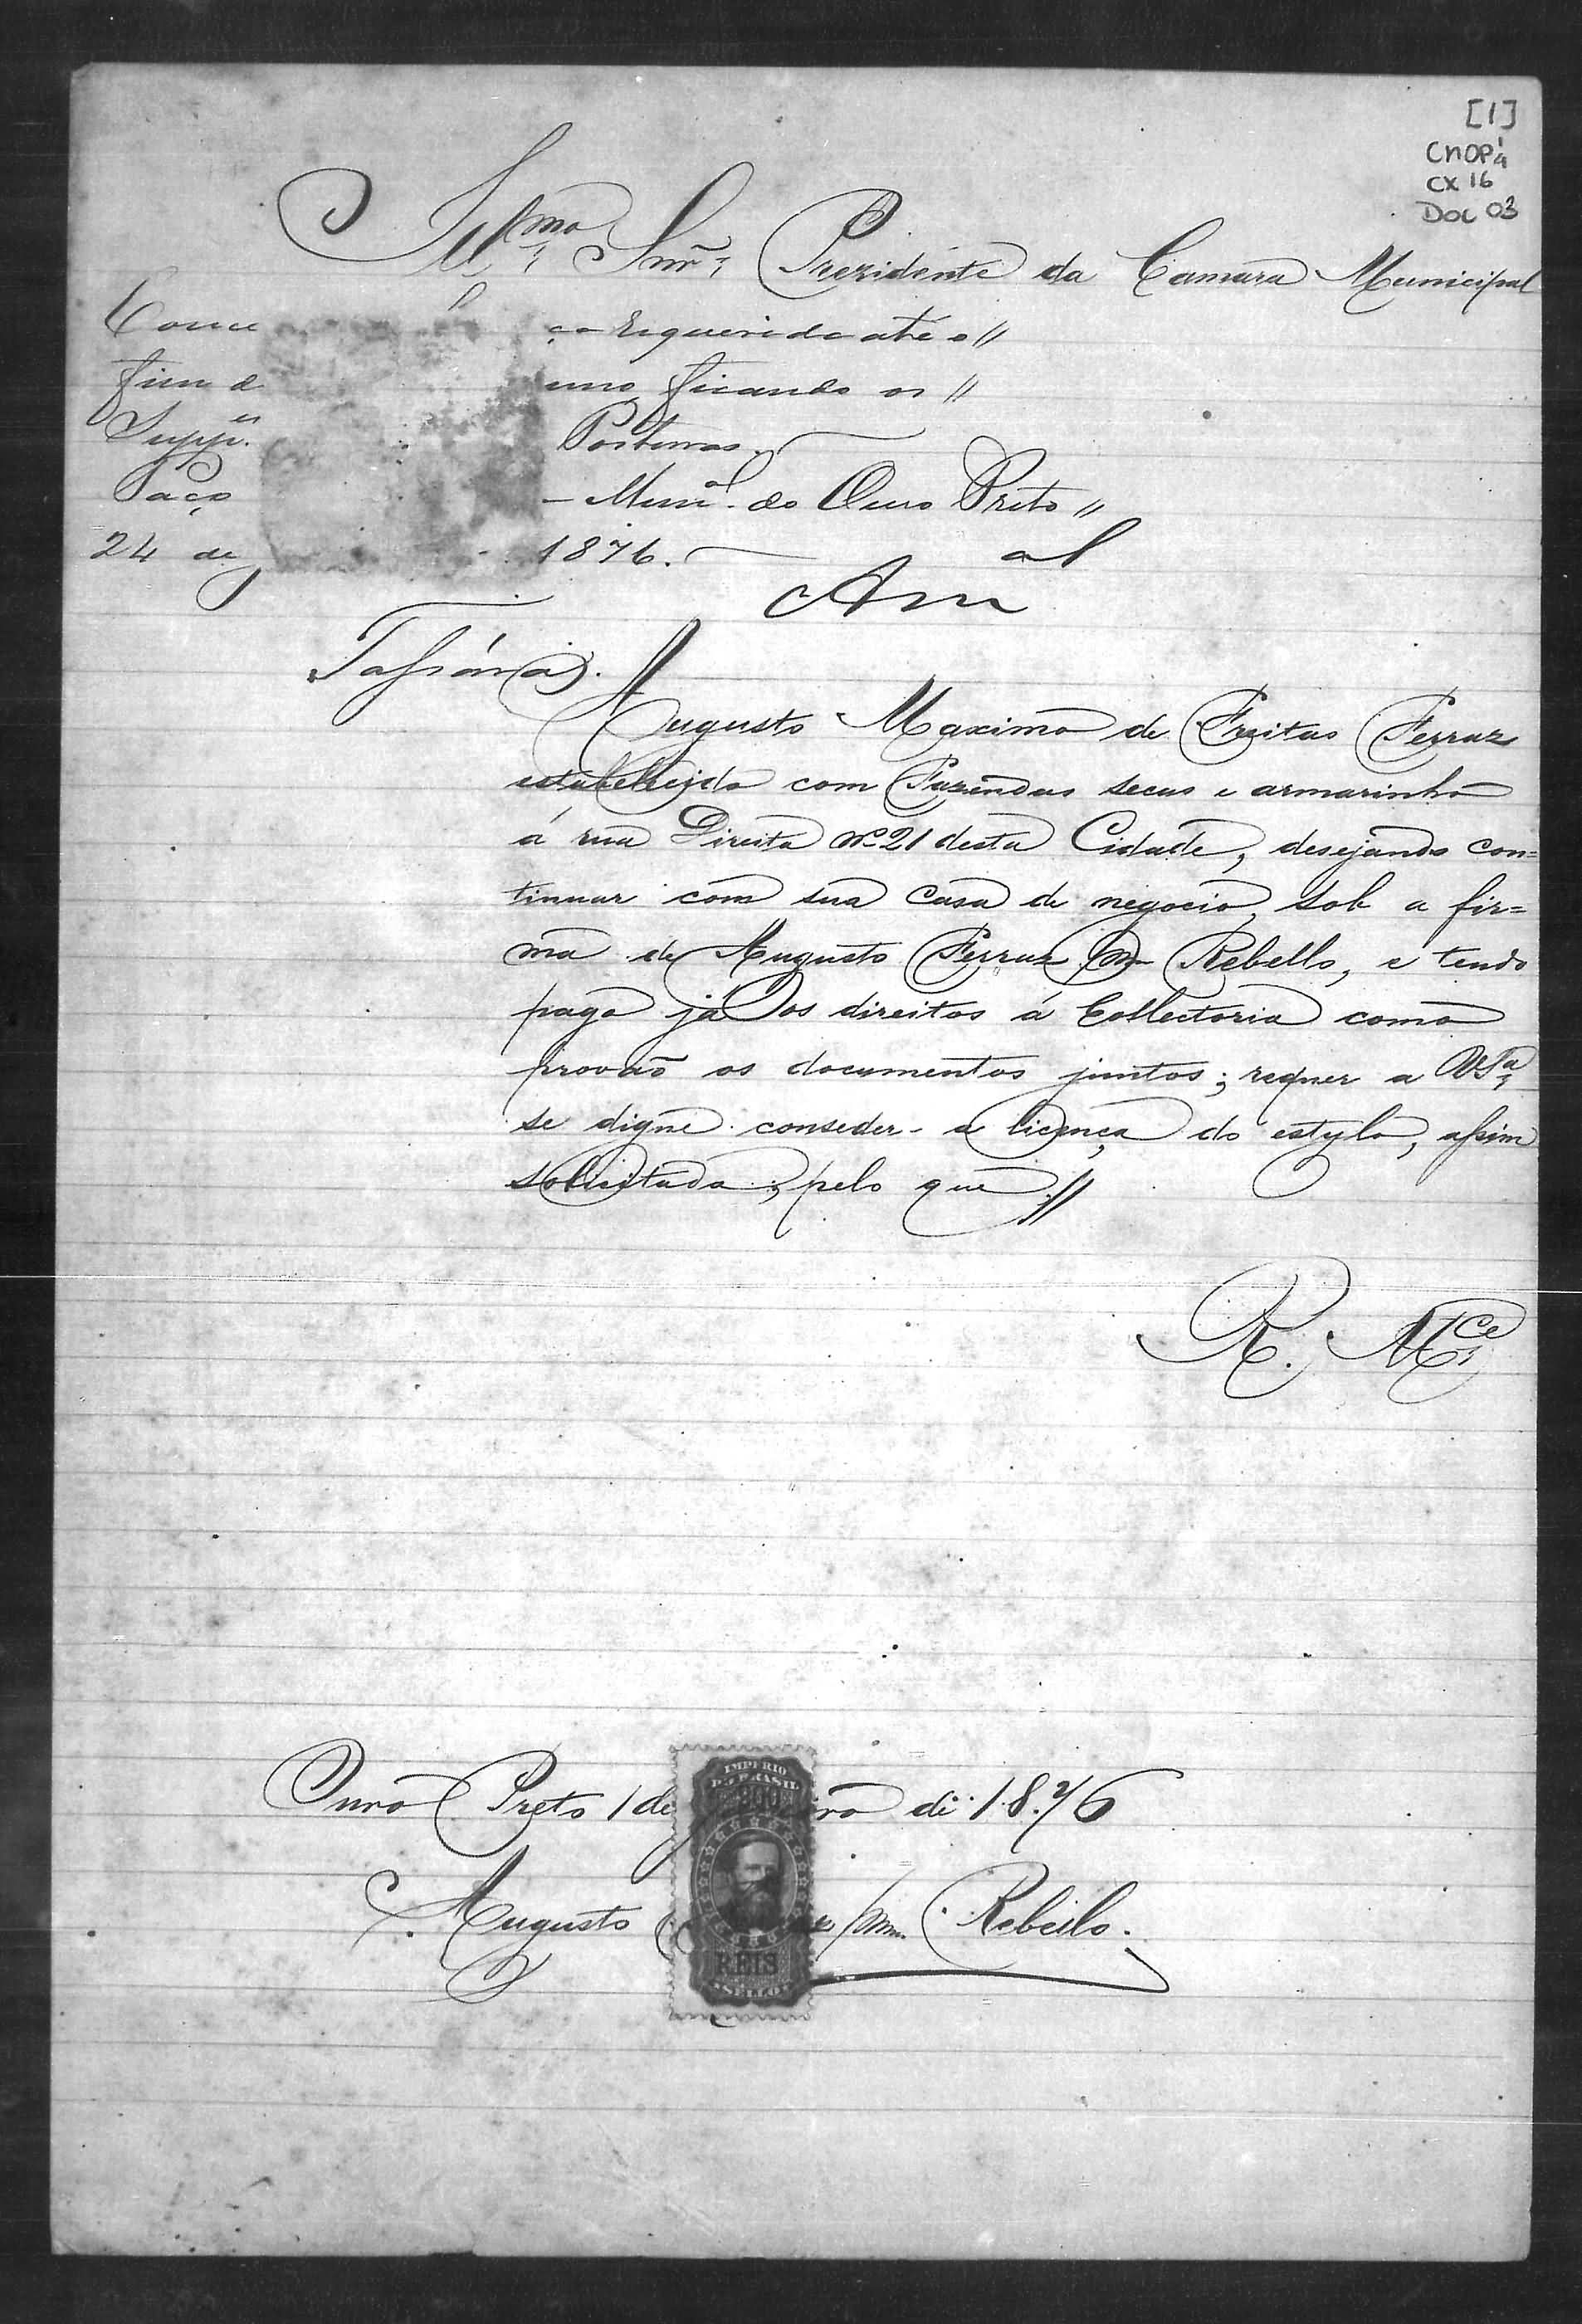 [1]
CMOP
CX 16
DOC 03
Illmo. Snr. Prezidente da Camara Municipal
Conce ça requerida até o //
fim d nno ficando os //
Suppes. Posturas.
Paço - Munal. do Ouro Preto //
24 de 1876.
Augusto Maximo de Freitas Ferraz
estabellecido com Fazendas secas e armarinho
á rua Direita No 21 desta Cidade, desejando con=
tinuar com sua casa de negocio, sob a fir=
ma de Augusto Ferraz Rebello, e tendo
pago já os direitos á Collectoria como
provão os documentos juntos; requer a VSa.
se digne conseder- a licença do estylo, assim
solicitada, pelo que //
R. Mce.
Ouro Preto 1 de iro de 1876
IMPERIO
DO BRASIL
200
REIS
SELLO
Augusto Rebello.